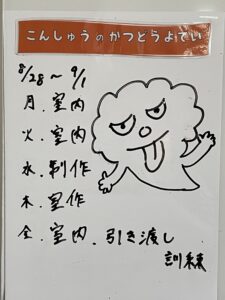 こんしゅうのかつどうよてい
8/28～9/1
月.室内
火.室内
水.制作
木.室作
金.室内.引き渡し
訓練